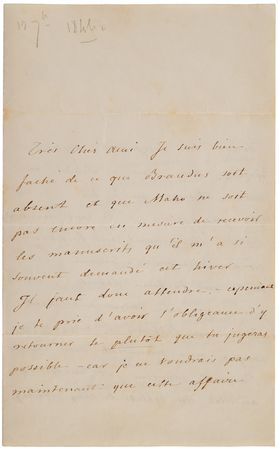 1846
Très cher ami Je suis bien
faché de ce que Brandus soit
absent et que Maho ne soit
pas encore en mesure de recevoir
les manuscrits qu'il m'a si
souvent demandé cet hiver
Il faut donc attendre. cependant
je te prie d'avoir l'obligeance d'y
retourner le plutôt que tu jugeras
possible - car je ne voudrais pas
maintenant que cette affaire